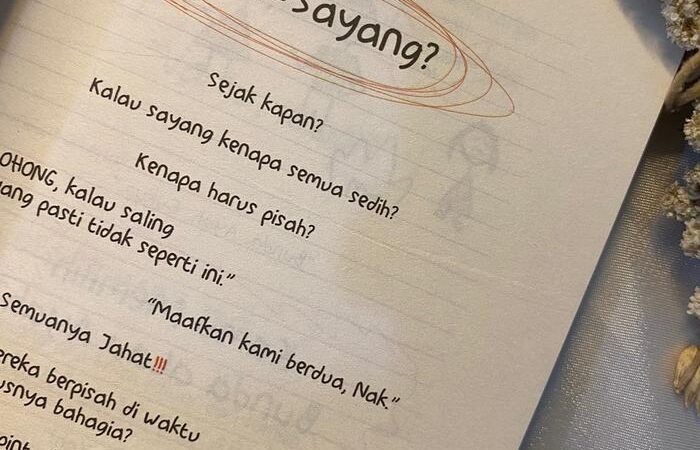 sayang?
Sejak kapan?
Kalau sayang kenapa semua sedih?
Kenapa harus pisah?
OHONG, kalau saling
ang pasti tidak seperti ini."
"Maafkan kami berdua, Nak."
Semuanya Jahat!!!
ereka berpisah di waktu
usnya bahagia?